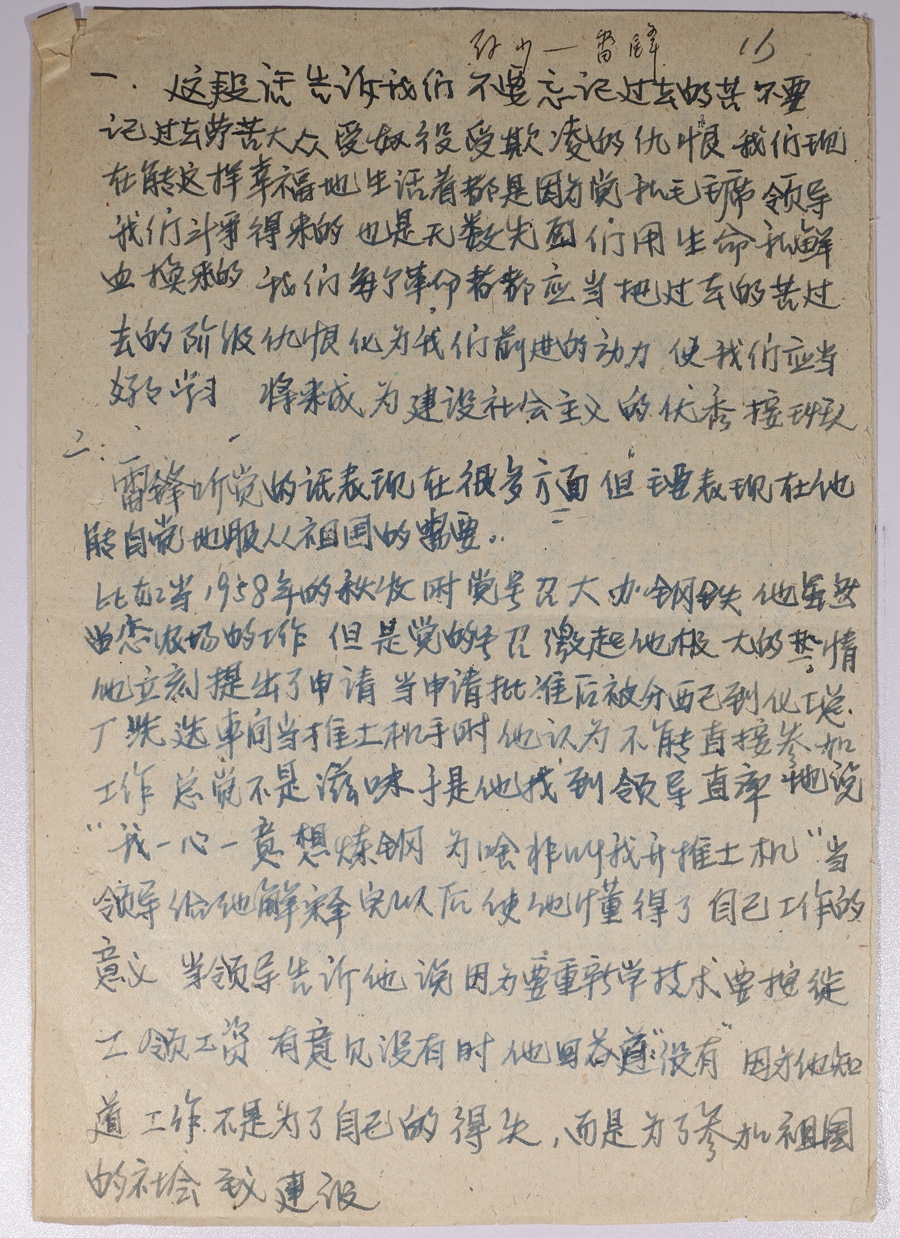 一 雷锋 15
一. 这段话告诉我们 不要忘记过去的苦 不要
记过去劳苦大众受奴役受欺凌的仇恨 我们现
在能这样幸福地生活着都是因为党和毛主席领导
我们斗争得来的 也是无数先烈们用生命和鲜
血换来的 我们每个革命者都应当把过去的苦过
去的阶级仇恨化为我们前进的动力 使我们应当
好好学习 将来成为建设社会主义的优秀接班队
二:
雷锋听党的话表现在很多方面 但主要表现在他
能自觉地服从祖国的需要。
比如:当1958年的秋收时党号召大办钢铁 他虽然
留恋农场的工作 但是党的号召激起他极大的热情
他立刻提出了申请 当申请批准后被分配到化工总
厂洗选车间当推土机手时 他认为不能直接参加
工作 总觉不是滋味 于是他找到领导直率地说
“我一心一意想炼钢 为啥非叫我开推土机”当
领导给他解释完以后 使他懂得了自己工作的
意义 当领导告诉他说因为要重新学技术要按徒
工领工资 有意见没有时 他回答道:“没有” 因为他知
道工作不是为了自己的得失,而是为了参加祖国
的社会主义建设